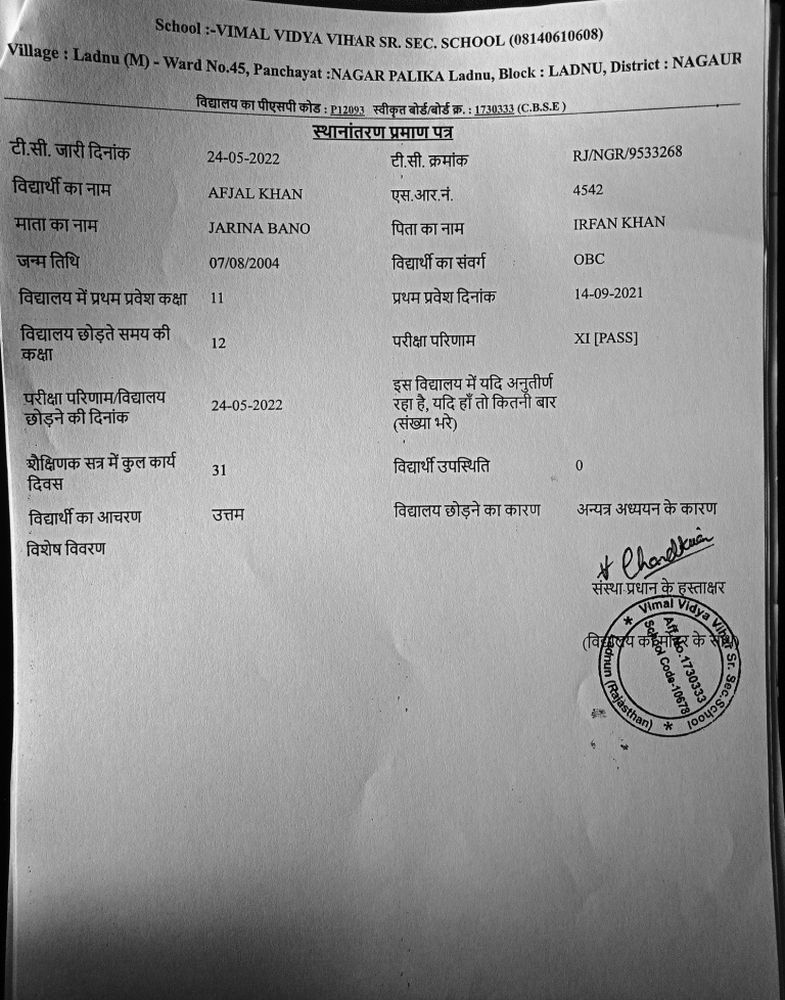 School :-VIMAL VIDYA VIHAR SR. SEC. SCHOOL (08140610608)
Village : Ladnu (M) - Ward No.45, Panchayat :NAGAR PALIKA Ladnu, Block : LADNU, District : NAGAUR
विद्यालय का पीएसपी कोड : P12093 स्वीकृत बोर्ड/बोर्ड क्र. : 1730333 (C.B.S.E )
स्थानांतरण प्रमाण पत्र
टी.सी. जारी दिनांक 24-05-2022 टी.सी. क्रमांक RJ/NGR/9533268
विद्यार्थी का नाम AFJAL KHAN एस.आर.नं. 4542
माता का नाम JARINA BANO पिता का नाम IRFAN KHAN
जन्म तिथि 07/08/2004 विद्यार्थी का संवर्ग OBC
विद्यालय में प्रथम प्रवेश कक्षा 11 प्रथम प्रवेश दिनांक 14-09-2021
विद्यालय छोड़ते समय की
कक्षा 12 परीक्षा परिणाम XI [PASS]
इस विद्यालय में यदि अनुतीर्ण
परीक्षा परिणाम/विद्यालय
छोड़ने की दिनांक 24-05-2022 रहा है, यदि हाँ तो कितनी बार
(संख्या भरे)
शैक्षिणक सत्र में कुल कार्य
दिवस 31 विद्यार्थी उपस्थिति 0
विद्यार्थी का आचरण उत्तम विद्यालय छोड़ने का कारण अन्यत्र अध्ययन के कारण
विशेष विवरण
संस्था प्रधान के हस्ताक्षर
(विद्यालय की मोहर के साथ)
Vimal Vidya Vihar Sr. Sec.School
Ladnun (Rajasthan)
Aff. No.1730333
School Code-10678